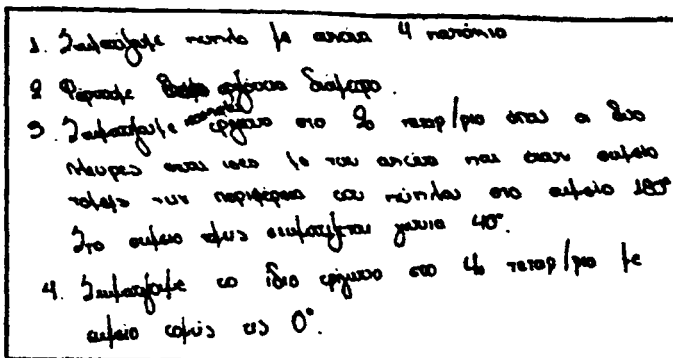 1. Σχηματίζουμε κύκλο με ακτίνα 4 κατόπιο
2 Φέρνουμε οριζόντια διάμετρο.
3. Σχηματίζουμε τρίγωνο στο 2ο τεταρ/ριο όπου οι δυο
πλευρες ειναι ισες με την ακτίνα και έχουν σημείο
τομής την περιφέρεια του κύκλου στο σημείο 180°
Στο σημειο τομής σχηματίζεται γωνια 40°.
4. Σχηματίζουμε το ίδιο τρίγωνο στο 4ο τεταρ/ριο με
σημείο τομής τις 0°.